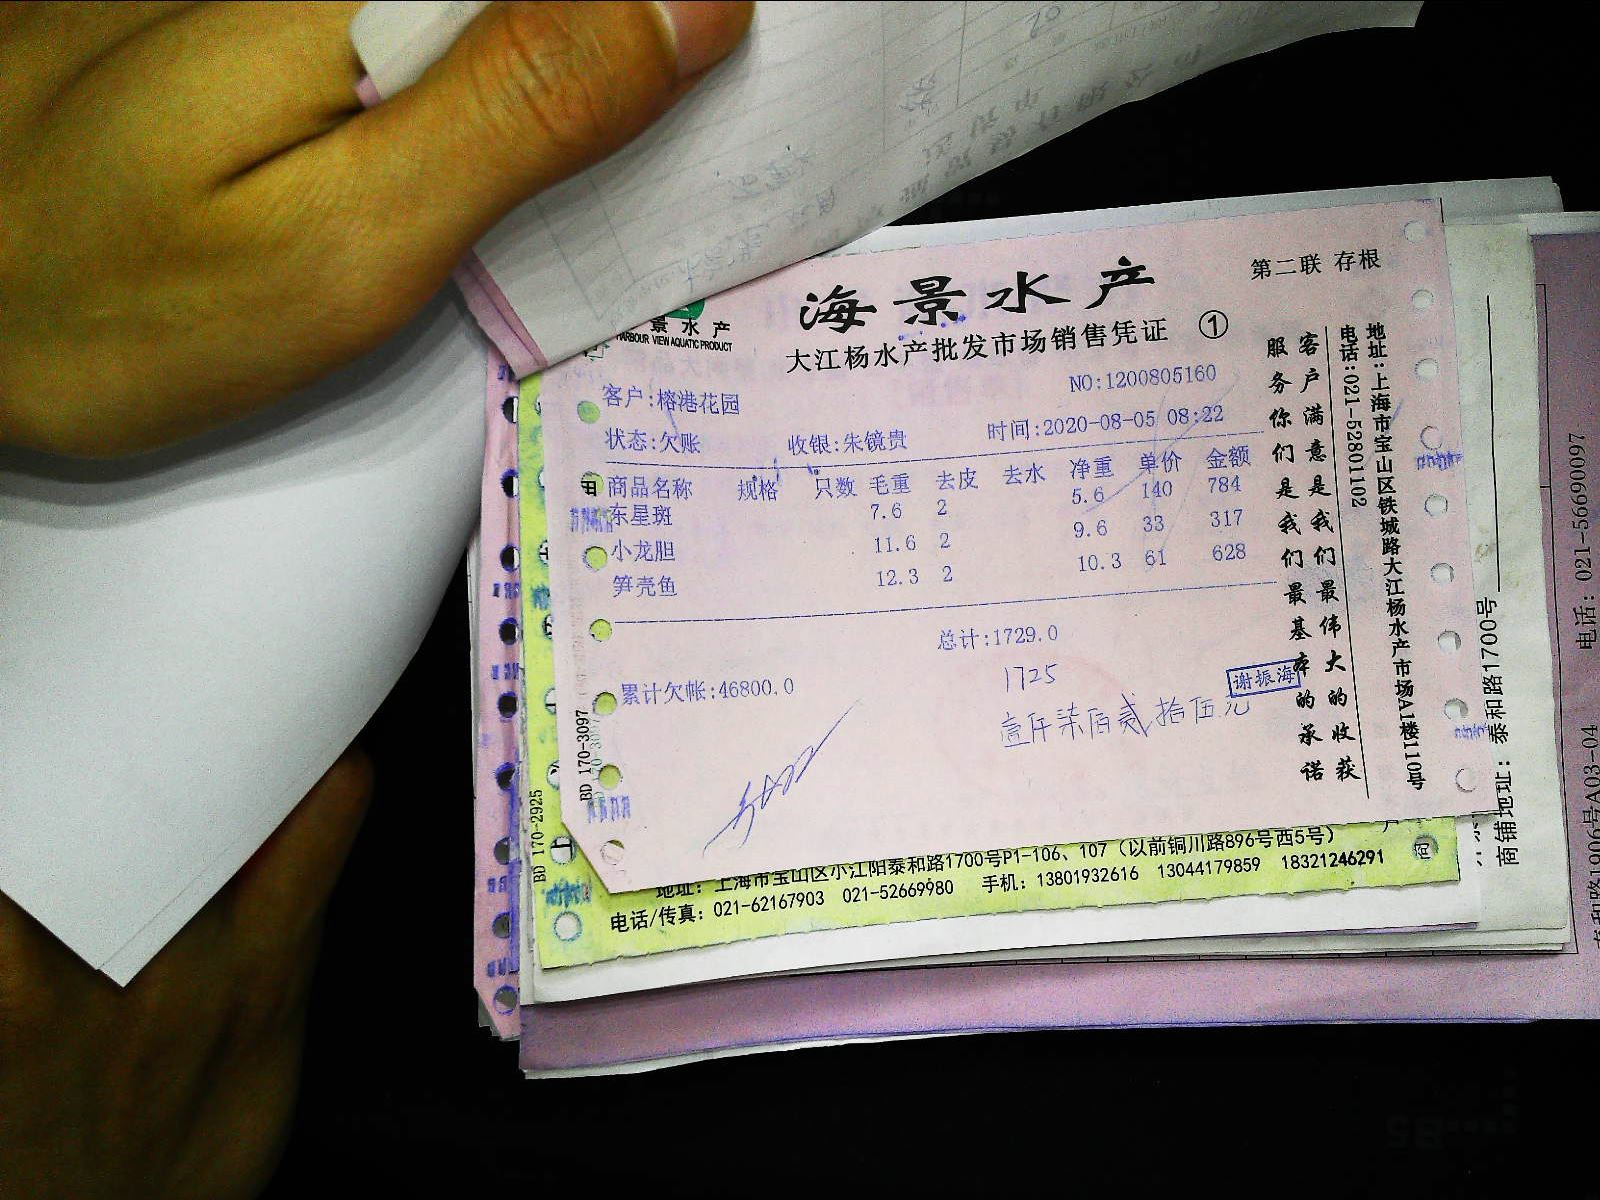 第二联 存根
海景水产
景水产
HARBOUR VIEW AQUATIC PRODUCT
大江杨水产批发市场销售凭证 ①
NO:1200805160
客户:榕港花园
状态:欠账 收银:朱镜贵 时间:2020-08-05 08:22
商品名称 规格 只数 毛重 去皮 去水 净重 单价 金额
东星斑 7.6 2 5.6 140 784
小龙胆 11.6 2 9.6 33 317
笋壳鱼 12.3 2 10.3 61 628
总计:1729.0
累计欠帐:46800.0
1725
壹仟柒佰贰拾伍元
谢振海
客户满意是我们最伟大的收获
服务你们是我们最基本的承诺
地址:上海市宝山区铁城路大江杨水产市场A1楼110号
电话:021-52801102
BD 170-3097
BD 170-2925
地址：上海市宝山区小江阳泰和路1700号P1-106、107（以前铜川路896号西5号）
电话/传真：021-62167903 021-52669980 手机：13801932616 13044179859 18321246291
商铺地址：泰和路1700号
电话：021-56690097
泰和路1906号A03-04